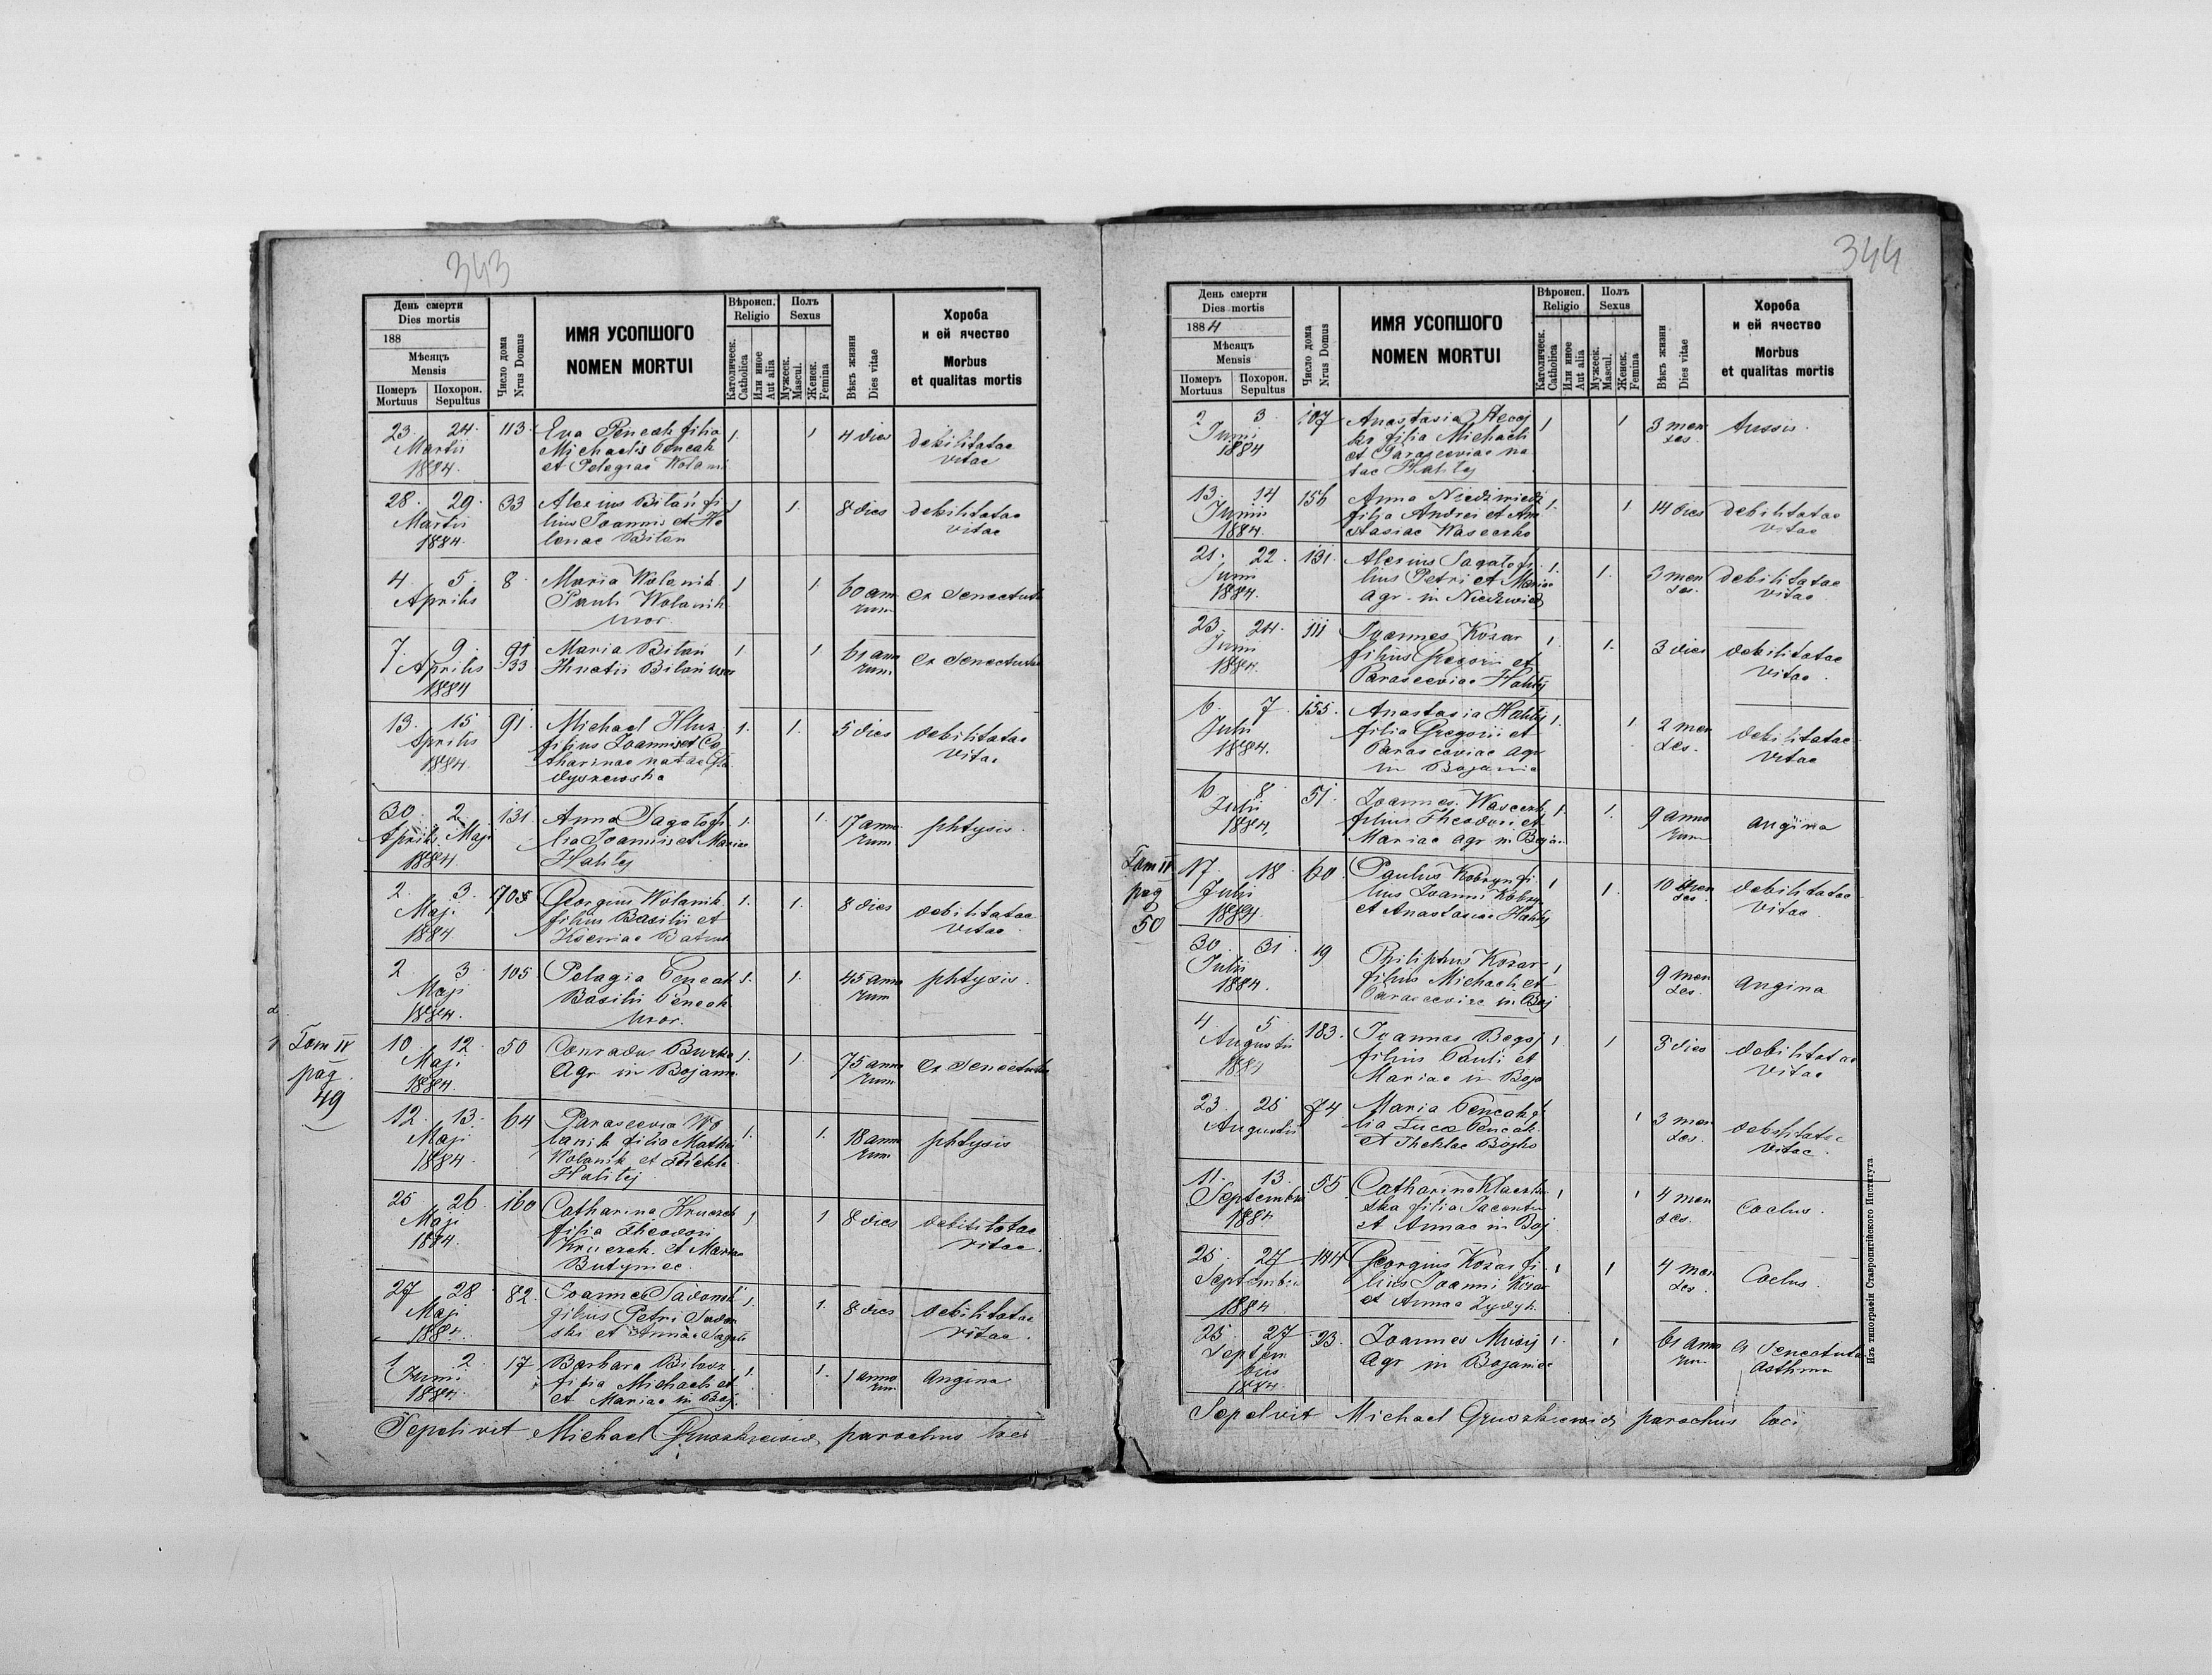 343
День смерти
Dies mortis
188
Мѣсяцъ
Mensis
Померъ Mortuus
Похорон. Sepultus
Число дома
Nrus Domus
ИМЯ УСОПШОГО
NOMEN MORTUI
Вѣроисп.
Religio
Католическ.
Catholica
Или иное
Aut alia
Полъ
Sexus
Мужеск.
Mascul.
Женск.
Femina
Вѣкъ жизни
Dies vitae
Хороба
и ей ячество
Morbus
et qualitas mortis
23. 24. 113. Eva Pencak filia 1. 1 4 dies debilitatae
Martii Michaelis Pencak vitae
1884. et Pelagiae Wolanik
28. 29. 33 Alexius Bilań fi 1 1. 8 dies debilitatae
Martii lius Joannis et He vitae
1884. lenae Bilan
4. 5. 8. Maria Wolanik 1 1 60 anno ex senectute
Aprilis Pauli Wolanik rum
uxor.
7. 9. 91 Maria Bilań 1 1 61 anno ex senectute
Aprilis 133 Hnatii Bilań uxor rum
1884
13. 15 91. Michael Hluz 1. 1. 5 dies debilitatae
Aprilis filius Joannis et Ca vitae
1884. tharinae natae
30. 2 131. Anna Sagalo fi 1. 1. 17 anno phtysis.
Aprilis Maji lia Joannis et Mariae rum
1884. Halitej
2. 3. 105 Georgius Wolanik 1. 1. 8 dies debilitatae
Maji filius Basilii et vitae
1884 Kseniae
2 3. 105 Pelagia Pencak 1. 1. 45 anno phtysis.
Maji Basilii Pencak rum
1884. uxor.
10. 12. 50 Conradus Burko 1. 1. 75 anno ex senectute
Maji Agr in Bojanie rum
1884.
Tom IV
pag.
49
12. 13. 64 Parascevia Wo 1. 1. 18 anno phtysis
Maji lanik filia Mathei rum
1884. Wolanik et Theklae
Halitej
25 26 160 Catharina Kruczek 1 1 8 dies debilitatae
Maji filia Theodori vitae.
1884. Kruczek et Mariae
Butyniec.
27 28 82. Joannes Sadowski 1. 1. 8 dies debilitatae
Maji filius Petri Sadow vitae.
1884. ski et Annae Sagalo
1 2. 17 Barbara 1. 1. 1 anno angina
Junii filia Michaelis et rum
1884. et Mariae in Boj.
Sepelivit Michael Gruszkiewicz parochus loci
344
День смерти
Dies mortis
1884
Мѣсяцъ
Mensis
Померъ Mortuus
Похорон. Sepultus
Число дома
Nrus Domus
ИМЯ УСОПШОГО
NOMEN MORTUI
Вѣроисп.
Religio
Католическ.
Catholica
Или иное
Aut alia
Полъ
Sexus
Мужеск.
Mascul.
Женск.
Femina
Вѣкъ жизни
Dies vitae
Хороба
и ей ячество
Morbus
et qualitas mortis
2 3. 107 Anastasia 1 1 3 men tussis.
Junii filia Michaeli ses.
1884 et Parasceviae na
tae Halitej
13. 14 156 Anna Niedźwiedź 1. 1 14 dies debilitatae
Junii filia Andrei et Ana vitae
1884. stasiae Waseczko
21. 22. 131. Alexius Sagalo fi 1. 1. 3 men debilitatae
Junii lius Petri et Mariae ses. vitae
1884. agr. in Niedzwiedz
23. 24. 111 Joannes Kozar 1. 1. 3 dies debilitatae
Junii filius Gregorii et vitae.
1884. Parasceviae Halitej
6. 7. 155. Anastasia Halitej 1. 1. 2 men debilitatae
Julii filia Gregorii et ses. vitae
1884. Parasceviae agr
in Bojanie
6. 8. 51. Joannes Waseczko 1. 1. 9 anno angina
Julii filius Theodori et rum
1884. Mariae agr in Bojan
Tom IV
pag
50
17. 18. 60. Paulus Kobryn fi 1 1. 10 men debilitatae
Julii lius Joanni Kobryn ses. vitae.
1884. et Anastasiae Halitej
30. 31. 19 Philiphus Kozar 1 9 men angina
Julii filius Michaeli et ses.
1884. Parasceviae in Boj
4 5 183. Joannes 1. 1 3 dies debilitatae
Augusti filius Pauli et vitae
1884 Mariae in Boja
23. 25 74. Maria Pencak fi 1 3 men debilitatae
Augusti lia Lucae Pencak ses. vitae.
et Theklae Bojko
11. 13. 55. Catharina 1 1 4 men Coelus.
Septembris filia Jacentii ses.
1884. et Annae in Boj
25. 27 144 Georgius Kozar fi 1 1 4 men Coelus.
Septembris lius Joanni Kozar ses.
1884 et Annae Zydyk
25. 27 23. Joannes 1. 1 61 anno ex senectute
Septem Agr in Bojanice rum asthma
bris
1884.
Sepelivit Michael Gruszkiewicz parochus loci
Изъ типографіи Ставропигійского Института